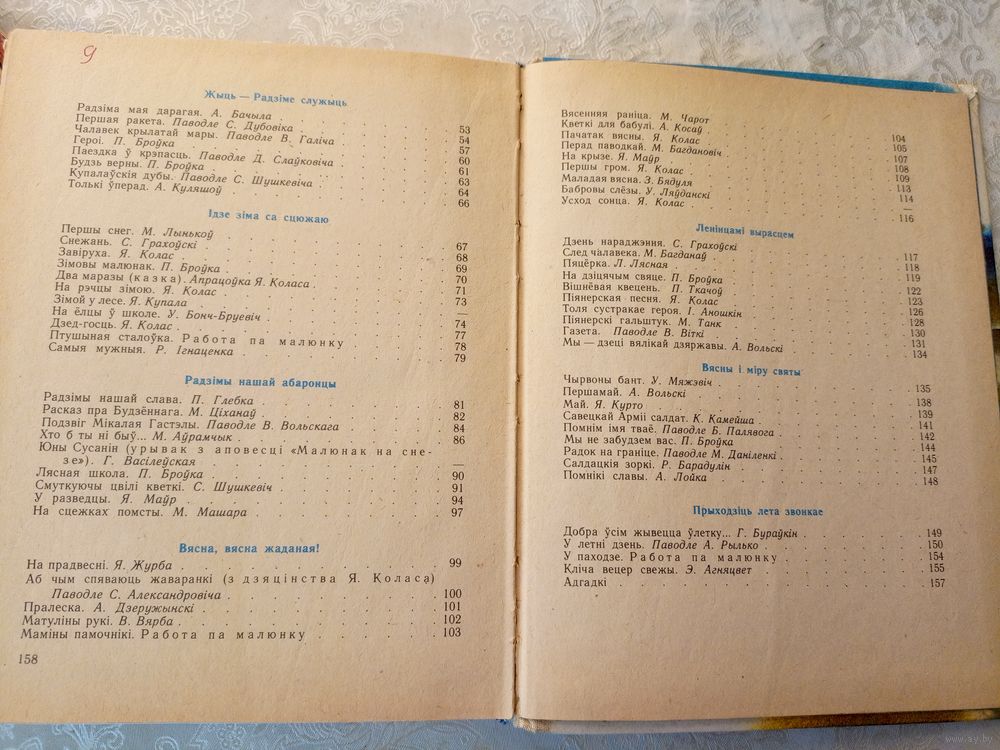 9
Жыць — Радзіме служыць
Радзіма мая дарагая. А. Бачыла . . . . 53
Першая ракета. Паводле С. Дубовіка . . . . 54
Чалавек крылатай мары. Паводле В. Галіча . . . . 57
Героі. П. Броўка . . . . 60
Паездка ў крэпасць. Паводле Д. Слаўковіча . . . . 61
Будзь верны. П. Броўка . . . . 63
Купалаўскія дубы. Паводле С. Шушкевіча . . . . 64
Толькі ўперад. А. Куляшоў . . . . 66
Ідзе зіма са сцюжаю
Першы снег. М. Лынькоў . . . . 67
Снежань. С. Грахоўскі . . . . 68
Завіруха. Я. Колас . . . . 69
Зімовы малюнак. П. Броўка . . . . 70
Два маразы (казка). Апрацоўка Я. Коласа . . . . 71
На рэчцы зімою. Я. Колас . . . . 73
Зімой у лесе. Я. Купала . . . . —
На ёлцы ў школе. У. Бонч-Бруевіч . . . . 74
Дзед-госць. Я. Колас . . . . 77
Птушыная сталоўка. Работа па малюнку . . . . 78
Самыя мужныя. Р. Ігнаценка . . . . 79
Радзімы нашай абаронцы
Радзімы нашай слава. П. Глебка . . . . 81
Расказ пра Будзённага. М. Ціханаў . . . . 82
Подзвіг Мікалая Гастэлы. Паводле В. Вольскага . . . . 84
Хто б ты ні быў... М. Аўрамчык . . . . 86
Юны Сусанін (урывак з аповесці «Малюнак на сне-
зе»). Г. Васілеўская . . . . —
Лясная школа. П. Броўка . . . . 90
Смуткуючы цвілі кветкі. С. Шушкевіч . . . . 91
У разведцы. Я. Маўр . . . . 94
На сцежках помсты. М. Машара . . . . 97
Вясна, вясна жаданая!
На прадвесні. Я. Журба . . . . 99
Аб чым спяваюць жаваранкі (з дзяцінства Я. Коласа)
Паводле С. Александровіча . . . . 100
Пралеска. А. Дзеружынскі . . . . 101
Матуліны рукі. В. Вярба . . . . 102
Маміны памочнікі. Работа па малюнку . . . . 103
158
Вясенняя раніца. М. Чарот . . . . 104
Кветкі для бабулі. А. Косаў . . . . 105
Пачатак вясны. Я. Колас . . . . 107
Перад паводкай. М. Багдановіч . . . . 108
На крызе. Я. Маўр . . . . 109
Першы гром. Я. Колас . . . . 113
Маладая вясна. З. Бядуля . . . . 114
Бабровы слёзы. У. Ляўданскі . . . . —
Усход сонца. Я. Колас . . . . 116
Ленінцамі вырасцем
Дзень нараджэння. С. Грахоўскі . . . . 117
След чалавека. М. Багданаў . . . . 118
Пяцёрка. Л. Лясная . . . . 119
На дзіцячым свяце. П. Броўка . . . . 122
Вішнёвая квецень. П. Ткачоў . . . . 123
Піянерская песня. Я. Колас . . . . 126
Толя сустракае героя. І. Аношкін . . . . 128
Піянерскі гальштук. М. Танк . . . . 130
Газета. Паводле В. Віткі . . . . 131
Мы — дзеці вялікай дзяржавы. А. Вольскі . . . . 134
Вясны і міру святы
Чырвоны бант. У. Мяжэвіч . . . . 135
Першамай. А. Вольскі . . . . 138
Май. Я. Курто . . . . 139
Савецкай Арміі салдат. К. Камейша . . . . 141
Помнім імя тваё. Паводле Б. Палявога . . . . 142
Мы не забудзем вас. П. Броўка . . . . 144
Радок на граніце. Паводле М. Даніленкі . . . . 145
Салдацкія зоркі. Р. Барадулін . . . . 147
Помнікі славы. А. Лойка . . . . 148
Прыходзіць лета звонкае
Добра ўсім жывецца ўлетку... Г. Бураўкін . . . . 149
У летні дзень. Паводле А. Рылько . . . . 150
У паходзе. Работа па малюнку . . . . 154
Кліча вецер свежы. Э. Агняцвет . . . . 155
Адгадкі . . . . 157
www.ay.by